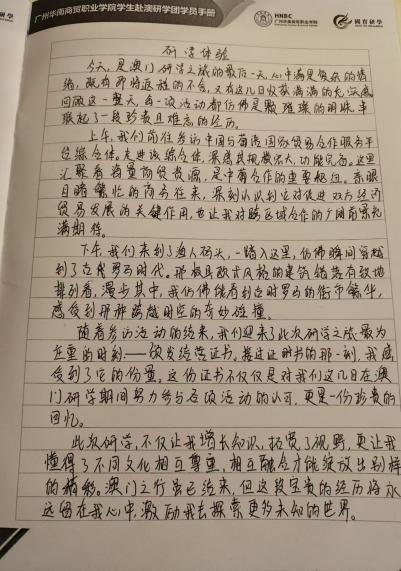 广州华南商贸职业学院学生赴澳研学团学员手册
HNBC
广州华南商贸职业学院
國育研學
研学体验
今天,是澳门研学之旅的最后一天,心中满是复杂的情
绪,既有即将返程的不舍,又有这几日收获满满的充实感
回顾这一整天,每一项活动都仿佛是颗璀璨的明珠,串
联起了一段珍贵且难忘的经历。
上午,我们前往参访中国与葡语国家贸易合作服务平
台综合体。走进该综合体,深感其规模宏大,功能完备。这里
汇聚着海量商贸资源,是中葡合作的重要枢纽。亲眼
目睹繁忙的商务往来,深刻认识到它对促进双方经济
贸易发展的关键作用,也让我对跨区域合作的广阔前景充
满期待。
下午,我们来到了渔人码头,一踏入这里,仿佛瞬间穿越
到了古代罗马时代。那极具欧式风格的建筑错落有致地
排列着,漫步其中,我仿佛能看到当时罗马的街市繁华,
感受到那种跨越时空的奇妙碰撞。
随着参访活动的结束,我们迎来了此次研学之旅最为
庄重的时刻——颁发结营证书。接过证书的那一刻,我感
受到了它的份量。这份证书不仅仅是对我们这几日在澳
门研学期间努力参与各项活动的认可,更是一份珍贵的
回忆。
此次研学,不仅让我增长知识,拓宽了视野,更让我
懂得了不同文化相互尊重,相互融合才能绽放出别样
的精彩。澳门之行虽已结束,但这段宝贵的经历将永
远留在我心中,激励我去探索更多未知的世界。